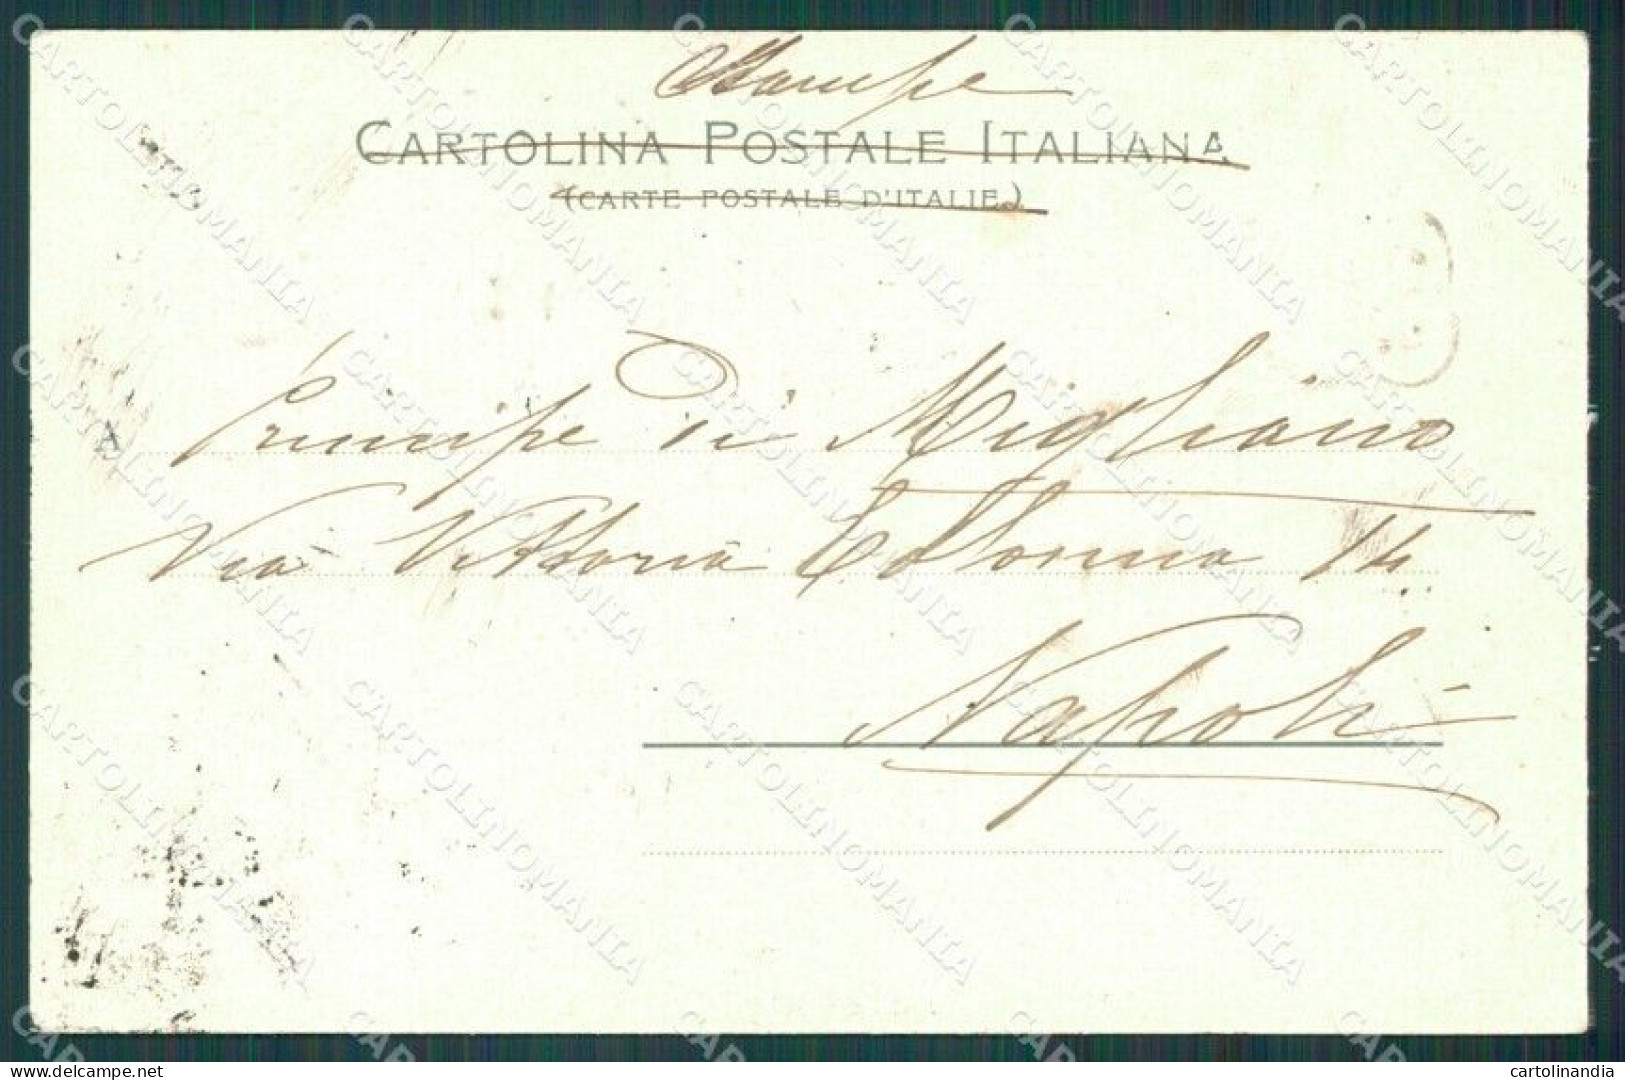 Stampe
CARTOLINA POSTALE ITALIANA
(CARTE POSTALE D'ITALIE)
A Principe di Migliano
Via Vittoria Colonna 14
Napoli
delcampe.net
cartolinandia